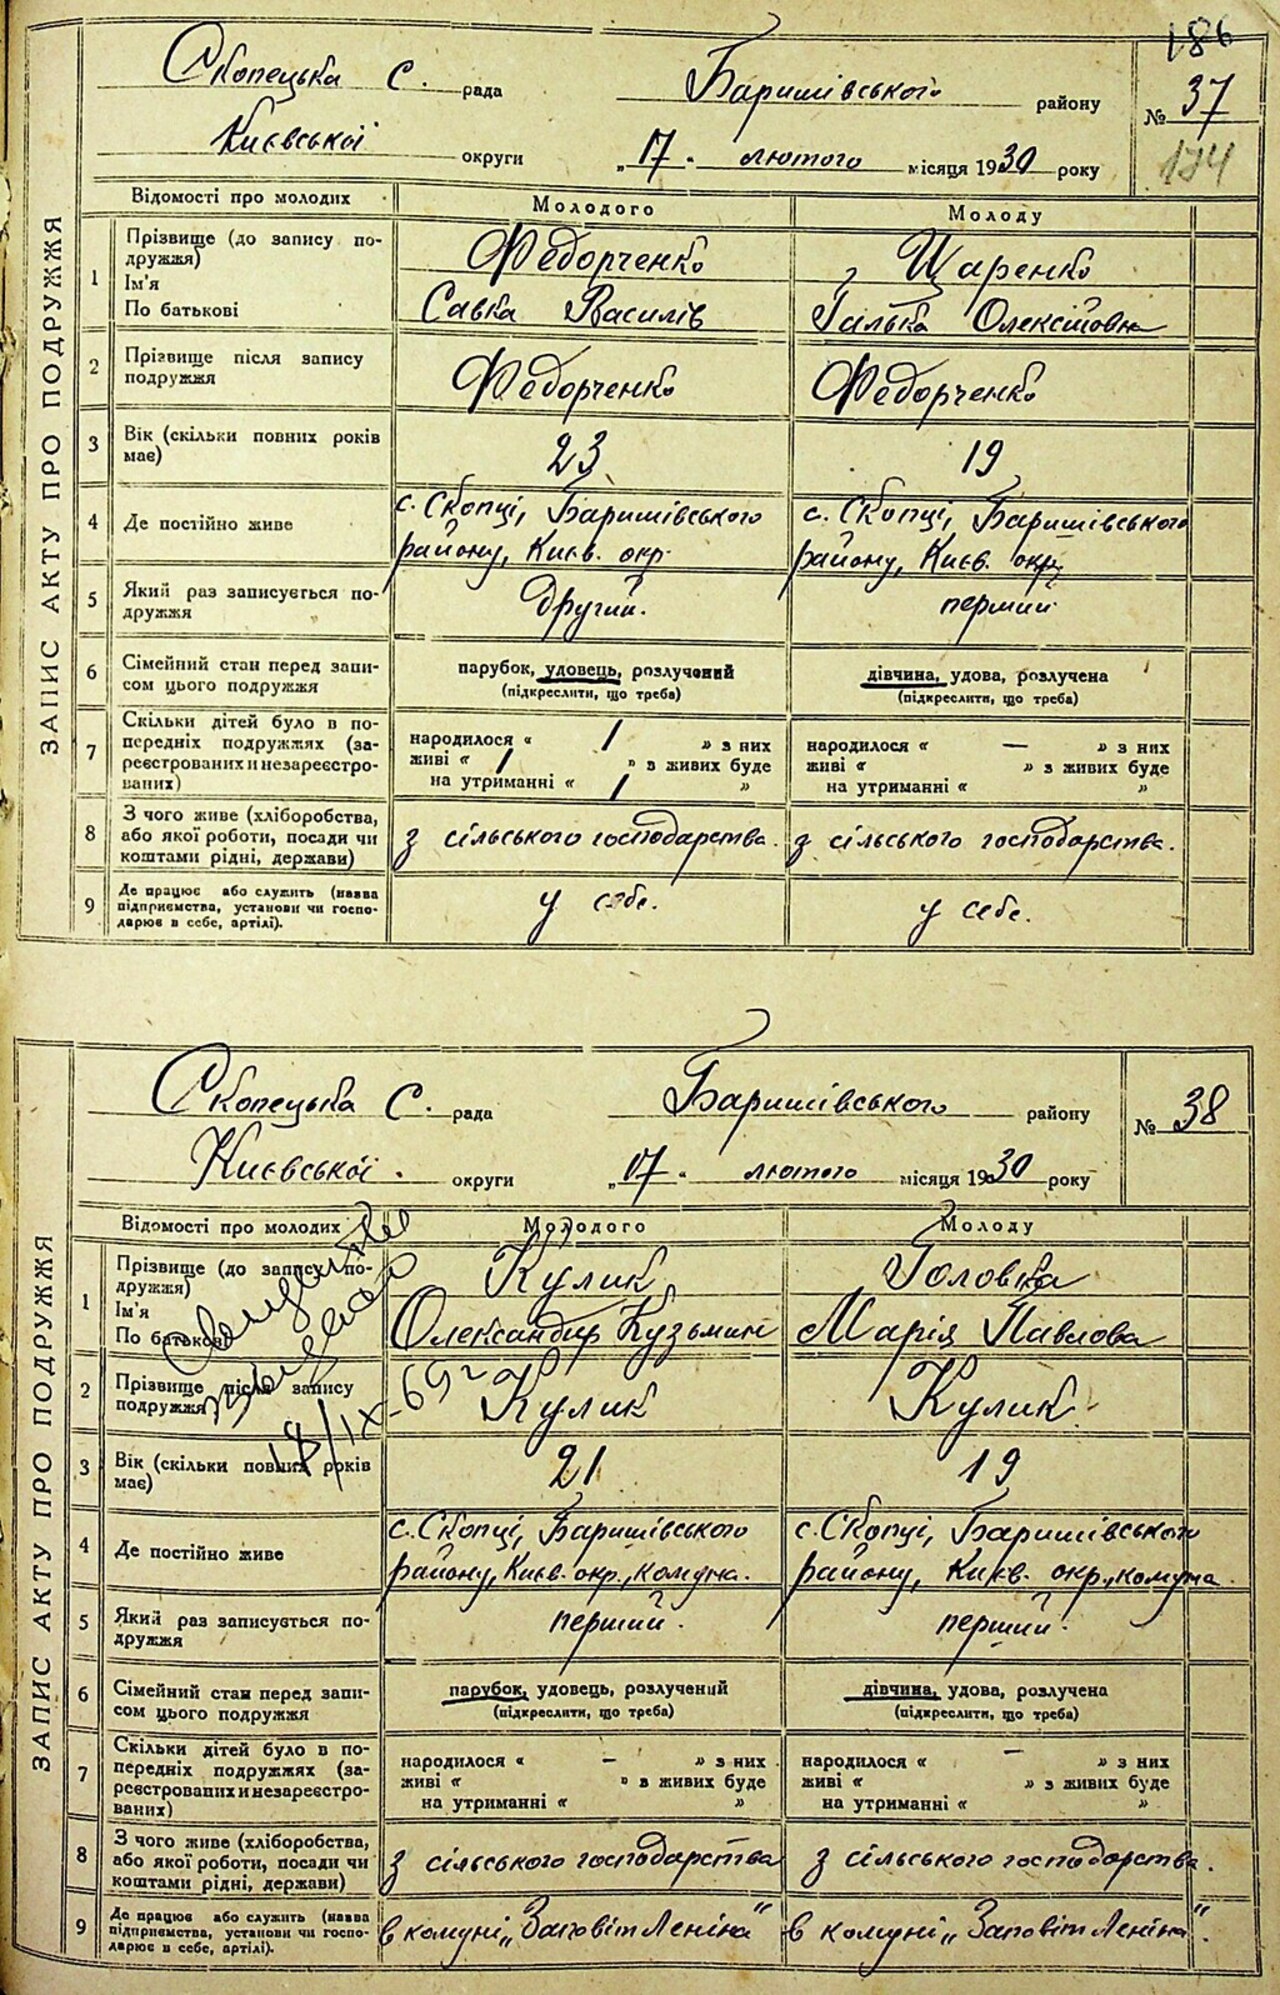 186
Скопецька С. рада Баришівського району № 37
Києвської округи „17" лютого місяця 1930 року
174
ЗАПИС АКТУ ПРО ПОДРУЖЖЯ
Відомості про молодих Молодого Молоду
1 Прізвище (до запису по-
дружжя) Федорченко Щаренко
Ім'я
По батькові Савка Василів Галька Олексіїовна
2 Прізвище після запису
подружжя Федорченко Федорченко
3 Вік (скільки повних років
має) 23 19
4 Де постійно живе с. Скопці, Баришівського с. Скопці, Баришівського
району, Києв. окр. району, Києв. окр.
5 Який раз записується по-
дружжя другий. перший
6 Сімейний стан перед запи-
сом цього подружжя парубок, удовець, розлучений дівчина, удова, розлучена
(підкреслити, що треба) (підкреслити, що треба)
7 Скільки дітей було в по-
передніх подружжях (за-
реєстрованих и незареєстро-
ваних)
народилося « 1 » з них народилося « — » з них
живі « 1 » з живих буде живі « » з живих буде
на утриманні « 1 » на утриманні « »
8 З чого живе (хліборобства,
або якої роботи, посади чи
коштами рідні, держави) з сільського господарства. з сільського господарства.
9 Де працює або служить (назва
підприємства, установи чи госпо-
дарює в себе, артілі). у себе. у себе.
Скопецька С. рада Баришівського району № 38
Києвської. округи „17" лютого місяця 1930 року
ЗАПИС АКТУ ПРО ПОДРУЖЖЯ
Відомості про молодих Молодого Молоду
1 Прізвище (до запису по-
дружжя) Кулик Головка
Ім'я
По батькові Олександир Кузьмин Марія Павлова
2 Прізвище після запису
подружжя Кулик Кулик
18/IX-69 г
3 Вік (скільки повних років
має) 21 19
4 Де постійно живе с. Скопці, Баришівського с. Скопці, Баришівського
району, Києв. окр., комуна. району, Києв. окр., комуна.
5 Який раз записується по-
дружжя перший. перший.
6 Сімейний стан перед запи-
сом цього подружжя парубок, удовець, розлучений дівчина, удова, розлучена
(підкреслити, що треба) (підкреслити, що треба)
7 Скільки дітей було в по-
передніх подружжях (за-
реєстрованих и незареєстро-
ваних)
народилося « — » з них народилося « — » з них
живі « » з живих буде живі « » з живих буде
на утриманні « » на утриманні « »
8 З чого живе (хліборобства,
або якої роботи, посади чи
коштами рідні, держави) з сільського господарства з сільського господарства.
9 Де працює або служить (назва
підприємства, установи чи госпо-
дарює в себе, артілі). в комуні „Заповіт Леніна" в комуні „Заповіт Леніна".